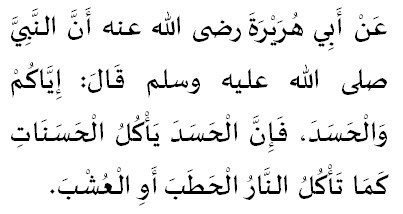 عَنْ أَبِي هُرَيْرَةَ رضى الله عنه أَنَّ النَّبِيَّ
صلى الله عليه وسلم قَالَ: إِيَّاكُمْ
وَالْحَسَدَ، فَإِنَّ الْحَسَدَ يَأْكُلُ الْحَسَنَاتِ
كَمَا تَأْكُلُ النَّارُ الْحَطَبَ أَوِ الْعُشْبَ.